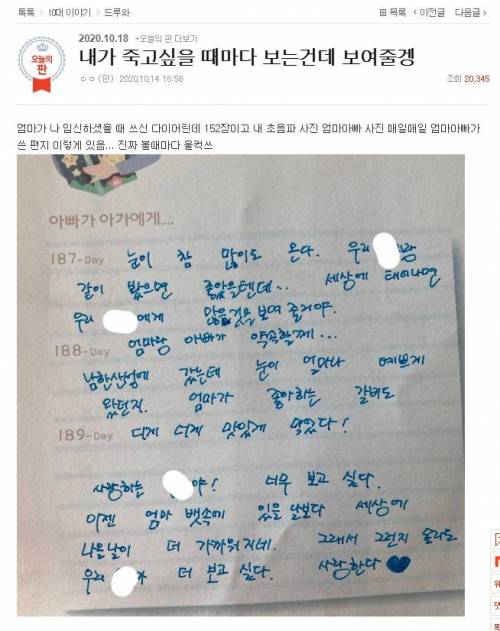 톡톡 > 10대 이야기 > 드루와
목록 < 이전글 다음글 >
오늘의 판
2020.10.18 +오늘의 판 더보기
내가 죽고싶을 때마다 보는건데 보여줄겡
ㅇㅇ (판) 2020.10.14 16:58
조회 20,345
엄마가 나 임신하셨을 때 쓰신 다이어린데 152장이고 내 초음파 사진 엄마아빠 사진 매일매일 엄마아빠가
쓴 편지 이렇게 있음... 진짜 볼때마다 울컥쓰
아빠가 아가에게....
187-Day 눈이 참 많이도 온다. 우리 랑
같이 봤으면 좋았을텐데.. 세상에 태어나면
우리 에게 많은것을 보여 줄거야.
엄마랑 아빠가 약속할께...
188-Day
남한산성에 갔는데 눈이 얼마나 예쁘게
왔던지. 엄마가 좋아하는 갈비도
189-Day 되게 되게 맛있게 먹었다!
사랑하는 야! 너무 보고 싶다.
이젠 엄마 뱃속에 있을 날보다 세상에
나올날이 더 가까워지네. 그래서 그런지
우리 가 더 보고 싶다. 사랑한다 ♥